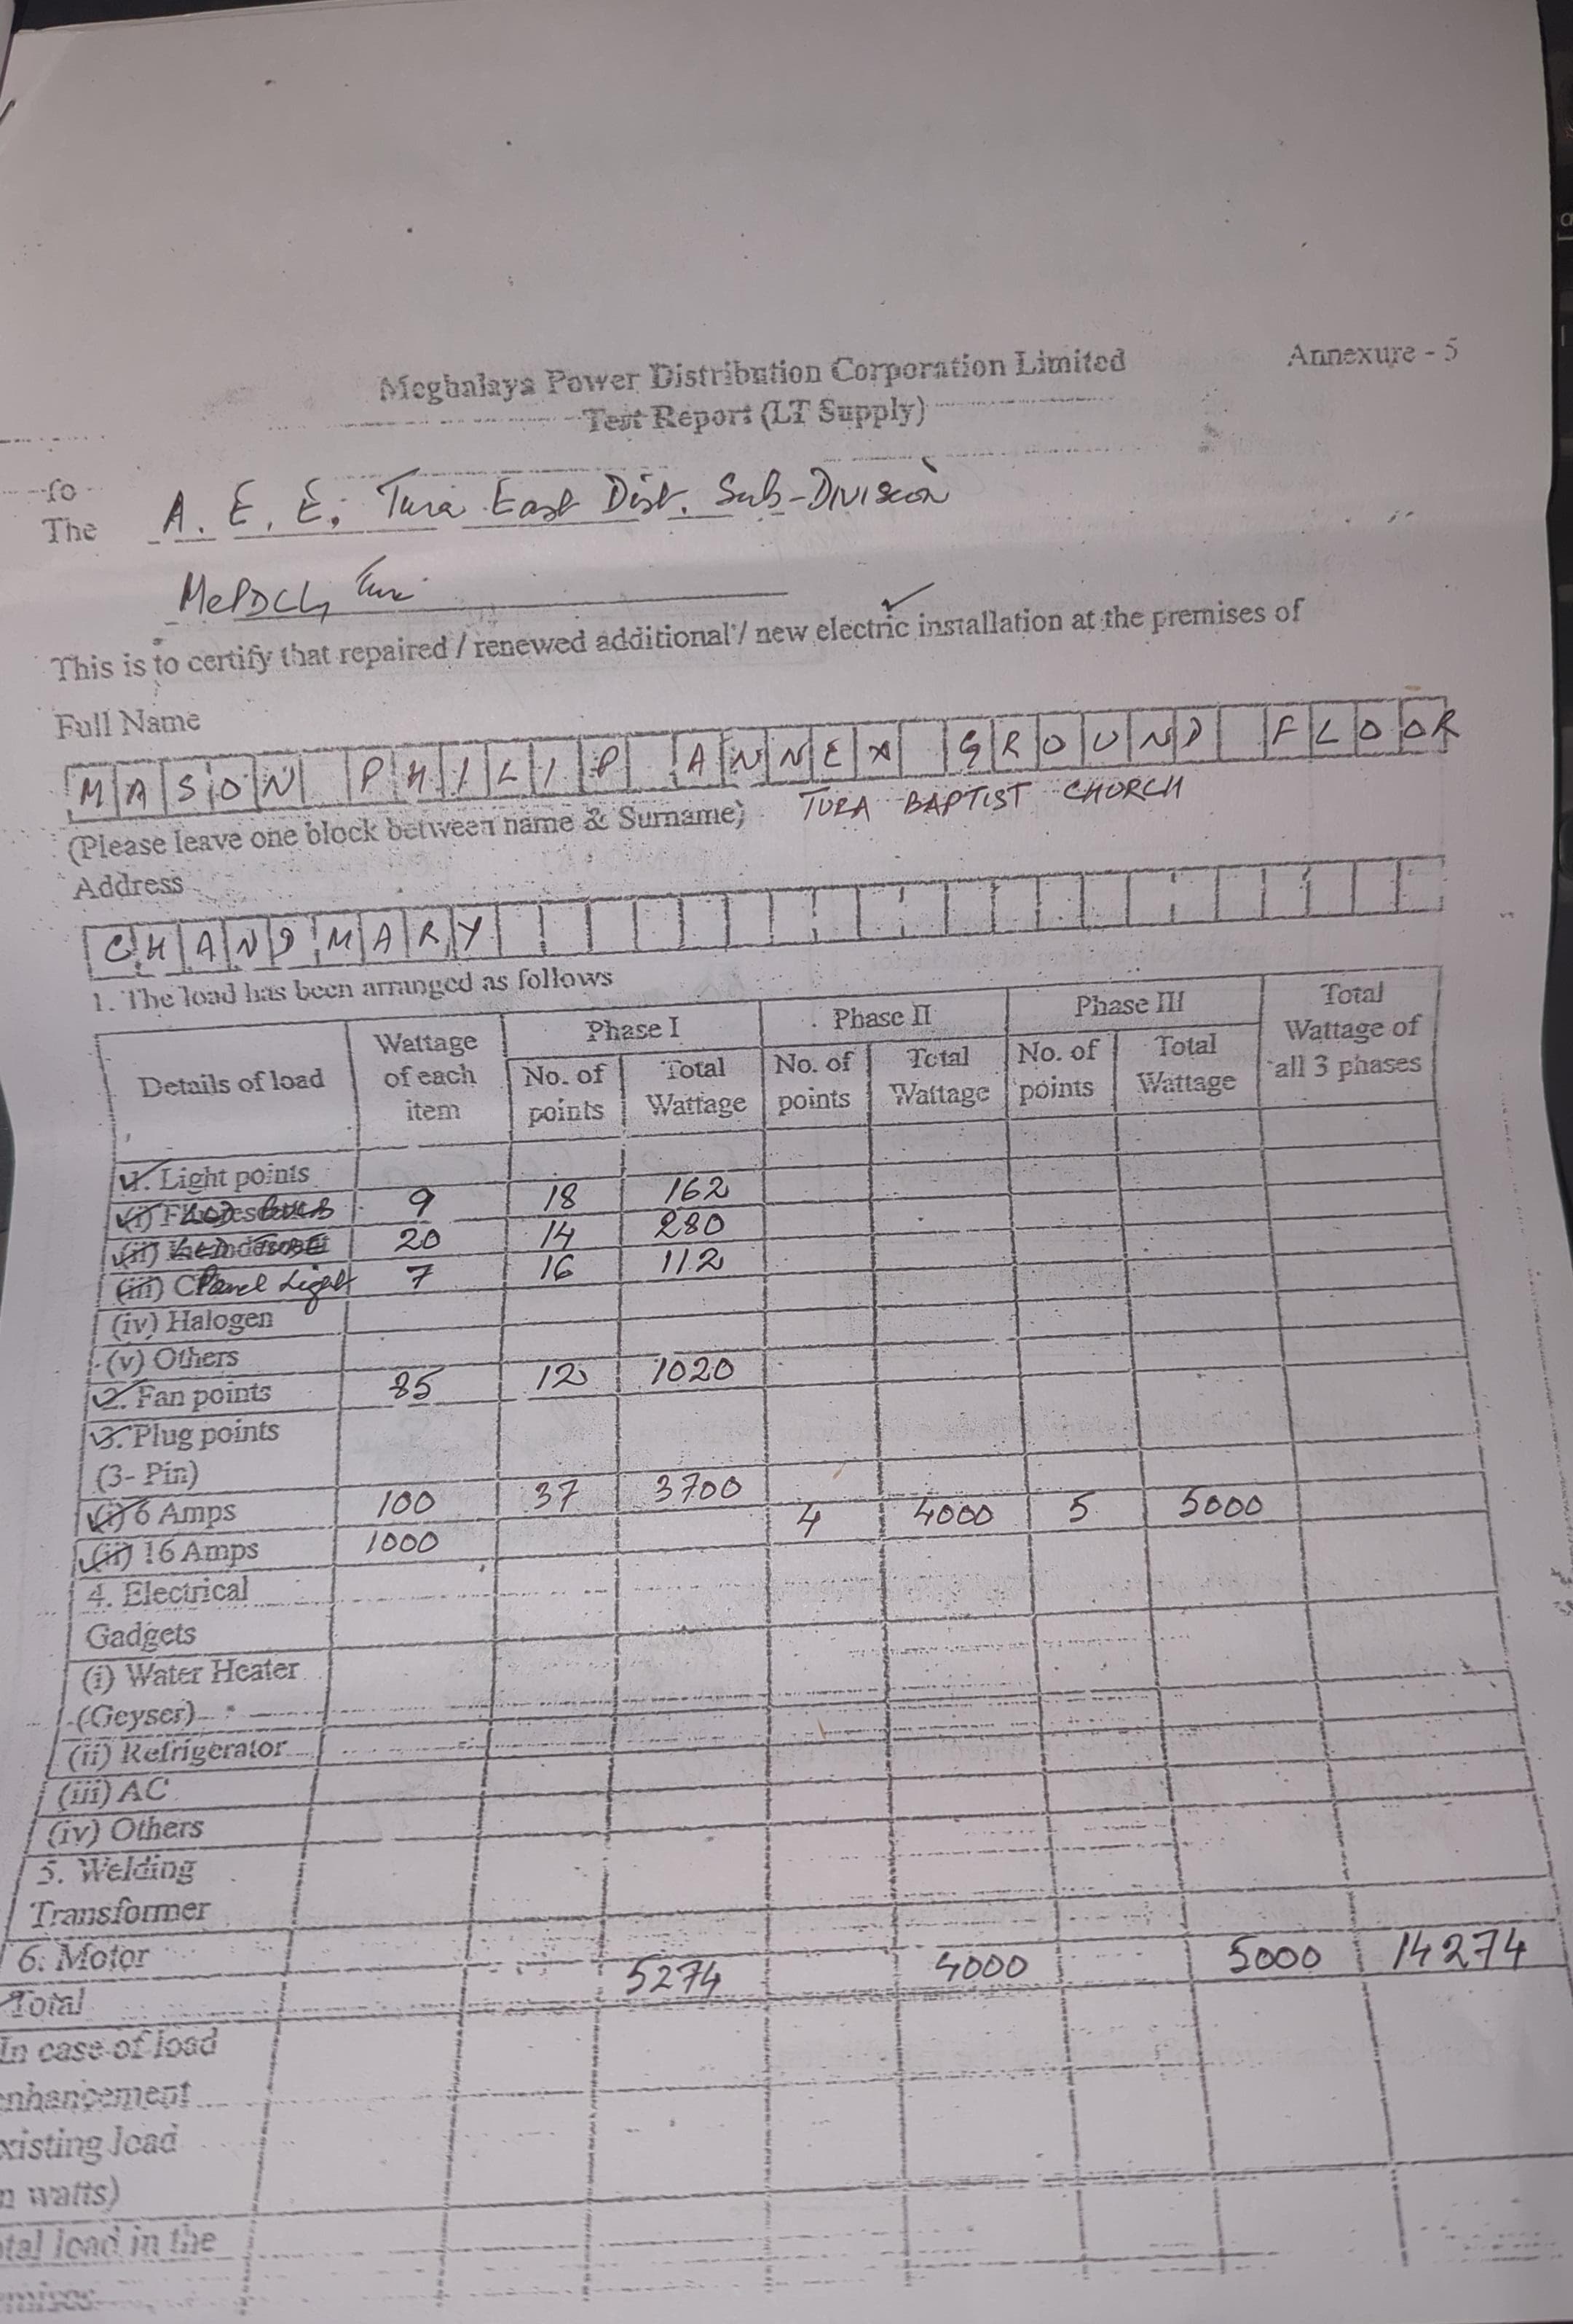 Annexure - 5
Meghalaya Power Distribution Corporation Limited
Test Report (LT Supply)
To
The A. E. E. Tura East Dist. Sub-Division
MePDCL, Tura
This is to certify that repaired / renewed additional / new electric installation at the premises of
Full Name
MASON PHILIP ANNEX GROUND FLOOR
(Please leave one block between name & Surname) TURA BAPTIST CHURCH
Address
CHANDMARY
1. The load has been arranged as follows
Details of load Wattage of each item Phase I Phase II Phase III Total Wattage of all 3 phases
No. of points Total Wattage No. of points Total Wattage No. of points Total Wattage
1. Light points
(i) LED 9 18 162
(ii) LED TUBE 20 14 280
(iii) Panel Light 7 16 112
(iv) Halogen
(v) Others
2. Fan points 85 12 1020
3. Plug points
(3- Pin)
(i) 6 Amps 100 37 3700
(ii) 16 Amps 1000 4 4000 5 5000
4. Electrical
Gadgets
(i) Water Heater
(Geyser)
(ii) Refrigerator
(iii) AC
(iv) Others
5. Welding
Transformer
6. Motor
Total 5274 4000 5000 14274
In case of load
enhancement
existing load
n watts)
tal load in the